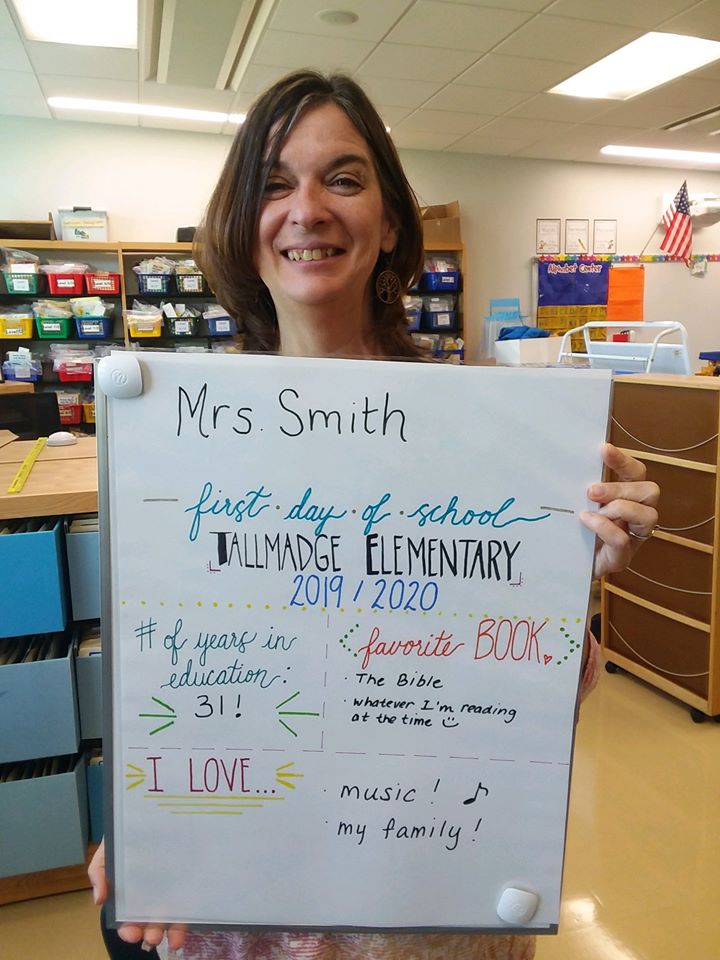 Mrs. Smith
first · day · of · school
TALLMADGE ELEMENTARY
2019 / 2020
# of years in
education:
31!
favorite BOOK
· The Bible
· whatever I'm reading
at the time
I LOVE...
· music!
· my family!
Alphabet Center